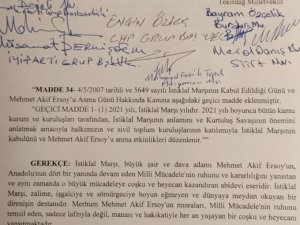 Tekirdağ Milletvekili
ENGİN ÖZKOÇ
CHP GRUP BAŞ
Bayram Özçelik
Burdur
İYİ PARTİ GRUP BŞK
Meral Danış
Siirt
"MADDE 34- 4/5/2007 tarihli ve 5649 sayılı İstiklal Marşının Kabul Edildiği Günü ve
Mehmet Akif Ersoy'u Anma Günü Hakkında Kanuna aşağıdaki geçici madde eklenmiştir.
"GEÇİCİ MADDE 1- (1) 2021 yılı, İstiklal Marşı yılıdır. 2021 yılı boyunca bütün kamu
kurum ve kuruluşları tarafından, İstiklal Marşının anlamını ve Kurtuluş Savaşının önemini
anlatmak amacıyla halkımızın ve sivil toplum kuruluşlarının katılımıyla İstiklal Marşının
kabulünü ve Mehmet Akif Ersoy'u anma etkinlikleri düzenlenir."
GEREKÇE: İstiklal Marşı, büyük şair ve dava adamı Mehmet Akif Ersoy'un,
Anadolu'nun dört bir yanında devam eden Milli Mücadele'nin ruhunu ve kararlılığını yansıtan
ve aynı zamanda o büyük mücadeleye coşku ve heyecan kazandıran abidevi eseridir. İstiklal
Marşı, zalime, işgalciye ve sömürgeciye boyun eğmeyen ve dünyaya meydan okuyan bir
direnişin destanıdır. Merhum Mehmet Akif Ersoy'un mısraları, Milli Mücadele'nin ruhunu
temsil eden, sadece lafzıyla değil, manası ve hakikatiyle her an yaşayan bir coşku ve heyecanı
yansıtmaktadır.